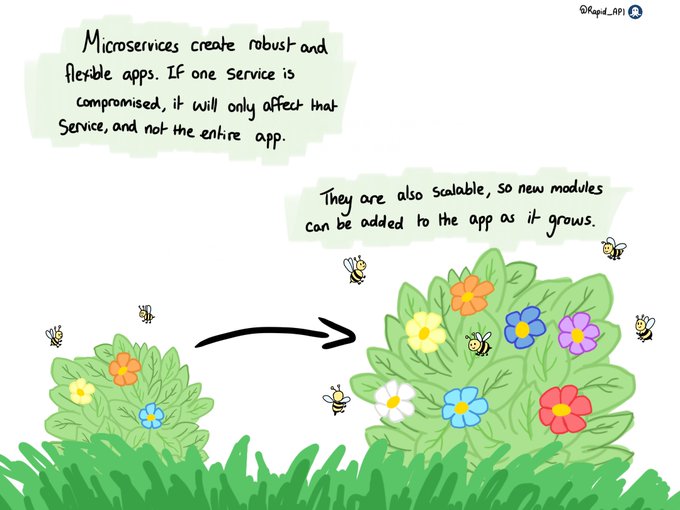 @Rapid_API
Microservices create robust and
flexible apps. If one service is
compromised, it will only affect that
Service, and not the entire app.
They are also scalable, so new modules
can be added to the app as it grows.